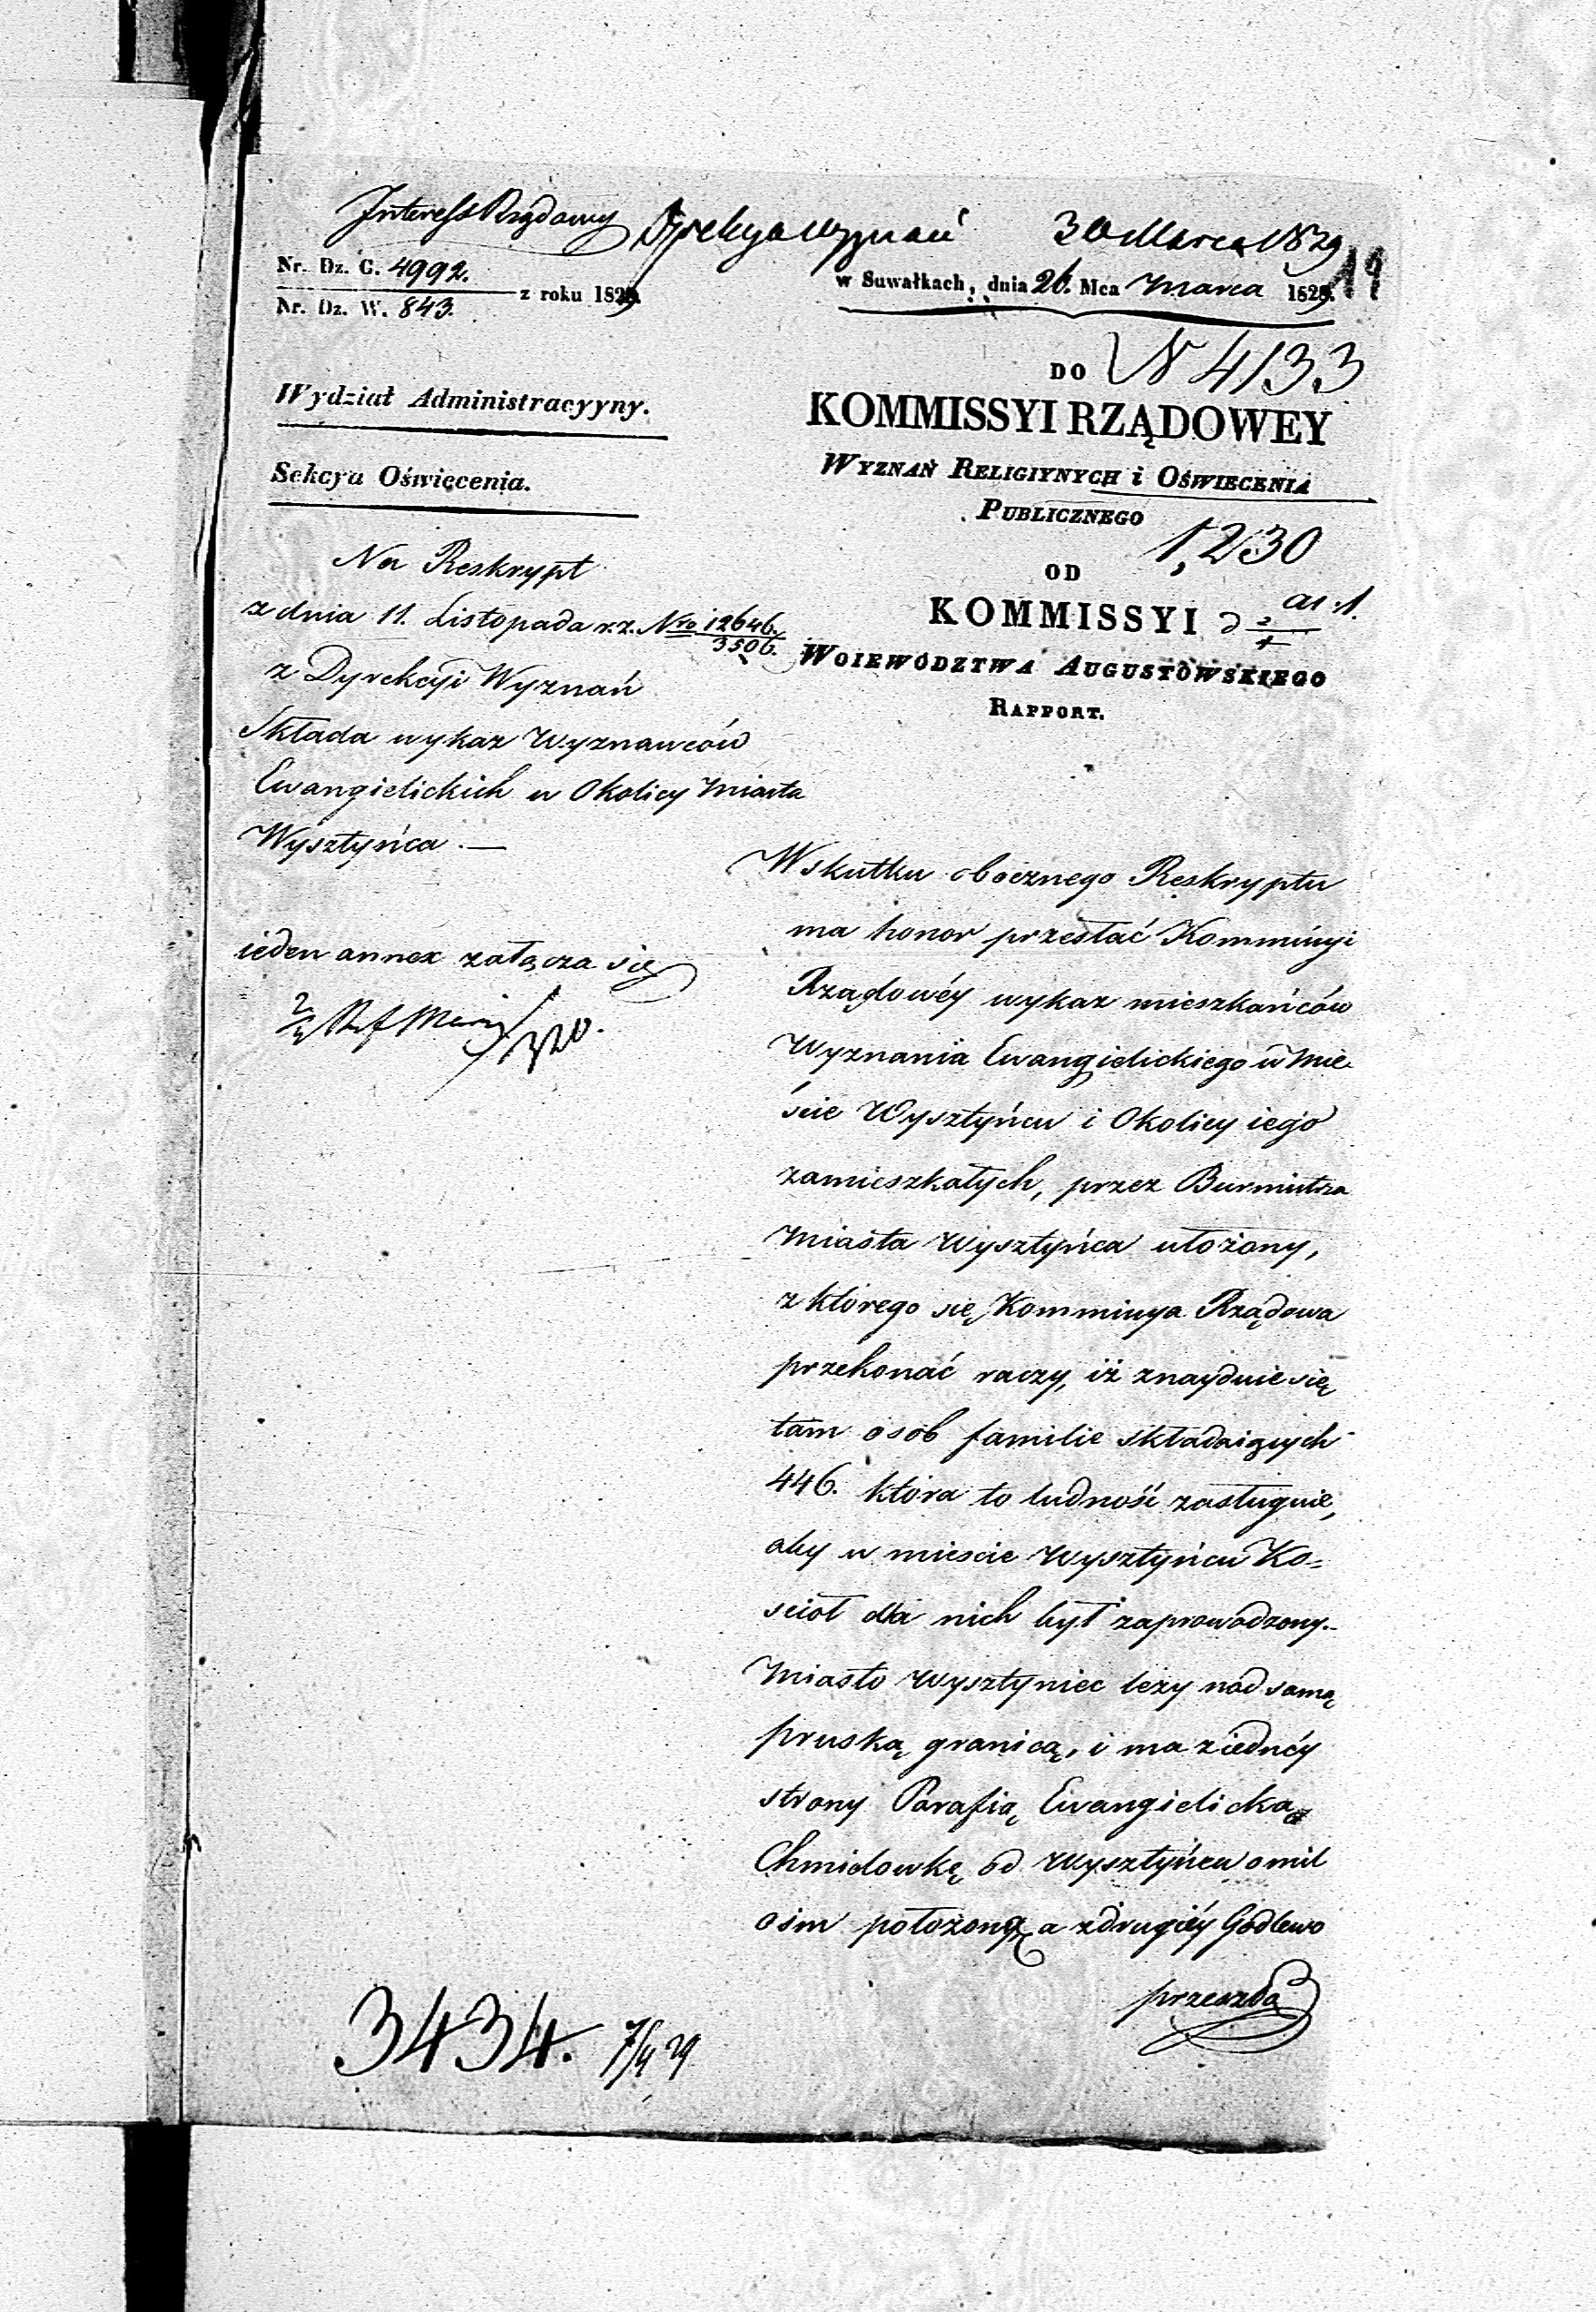 Interess Rządowy Dyrekcya Wyznań 30 Marca 1829
19
Nr. Dz. G. 4992.
Nr. Dz. W. 843.
z roku 1829
w Suwałkach, dnia 26. Mca Marca 1829.
DO N 4133
KOMMISSYI RZĄDOWEY
WYZNAŃ RELIGIYNYCH i OŚWIECENIA
PUBLICZNEGO
1,230
OD
KOMMISSYI
WOIEWÓDZTWA AUGUSTOWSKIEGO
RAPPORT.
Wydział Administracyyny.
Sekcya Oświecenia.
Na Reskrypt
z dnia 11. Listopada r. z. Nro 12646
3506.
z Dyrekcyi Wyznań
Składa wykaz Wyznawców
Ewangielickich w Okolicy Miasta
Wysztyńca. —
ieden annex załącza się
320.
Wskutku obocznego Reskryptu
ma honor przesłać Kommissyi
Rządowéy wykaz mieszkańców
Wyznania Ewangielickiego w Mie-
ście Wysztyńcu i Okolicy iego
zamieszkałych, przez Burmistrza
Miasta Wysztyńca ułożony,
z którego się Kommissya Rządowa
przekonać raczy, iż znayduie się
tam osob familie składaiących
446. która to ludność zasługuie,
aby w mieście Wysztyńcu Ko=
ścioł dla nich był zaprowadzony.
Miasto Wysztyniec leży nad samą
pruską granicą, i ma z iednéy
strony Parafią Ewangielicką
Chmielowkę od Wysztyńca o mil
ośm położoną a z drugiéy Godlewo
przeszło
3434. 7/4 29